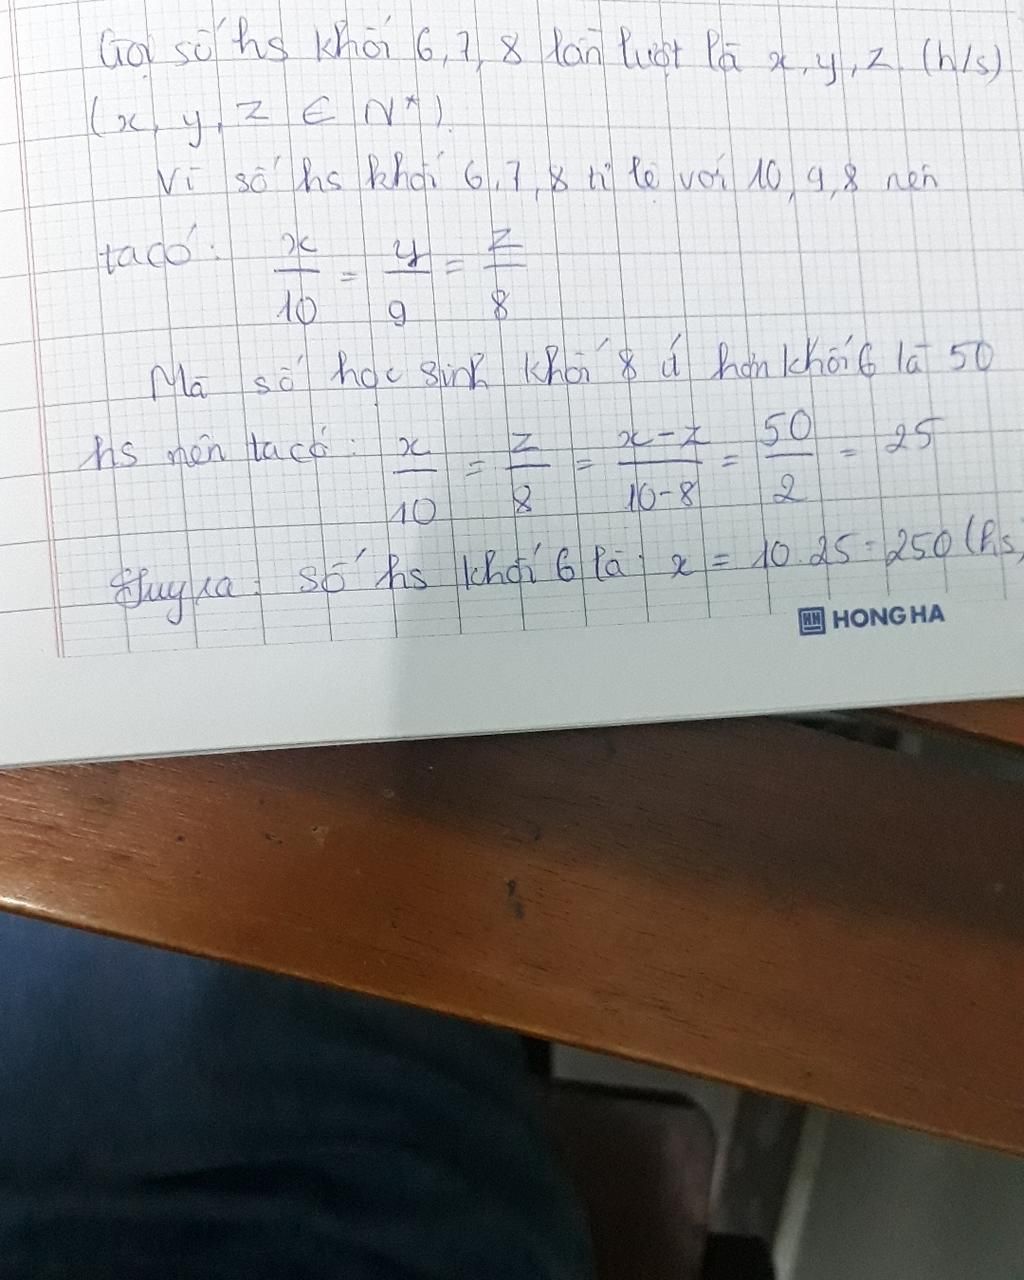 Gọi số hs khối 6, 7, 8 lần lượt là x, y, z (h/s)
(x, y, z ∈ N*).
Vì số hs khối 6, 7, 8 tỉ lệ với 10, 9, 8 nên
ta có: x/10 = y/9 = z/8
Mà số học sinh khối 8 ít hơn khối 6 là 50
hs nên ta có: x/10 = z/8 = x-z/10-8 = 50/2 = 25
Suy ra: số hs khối 6 là: x = 10.25 = 250 (hs)
HONG HA